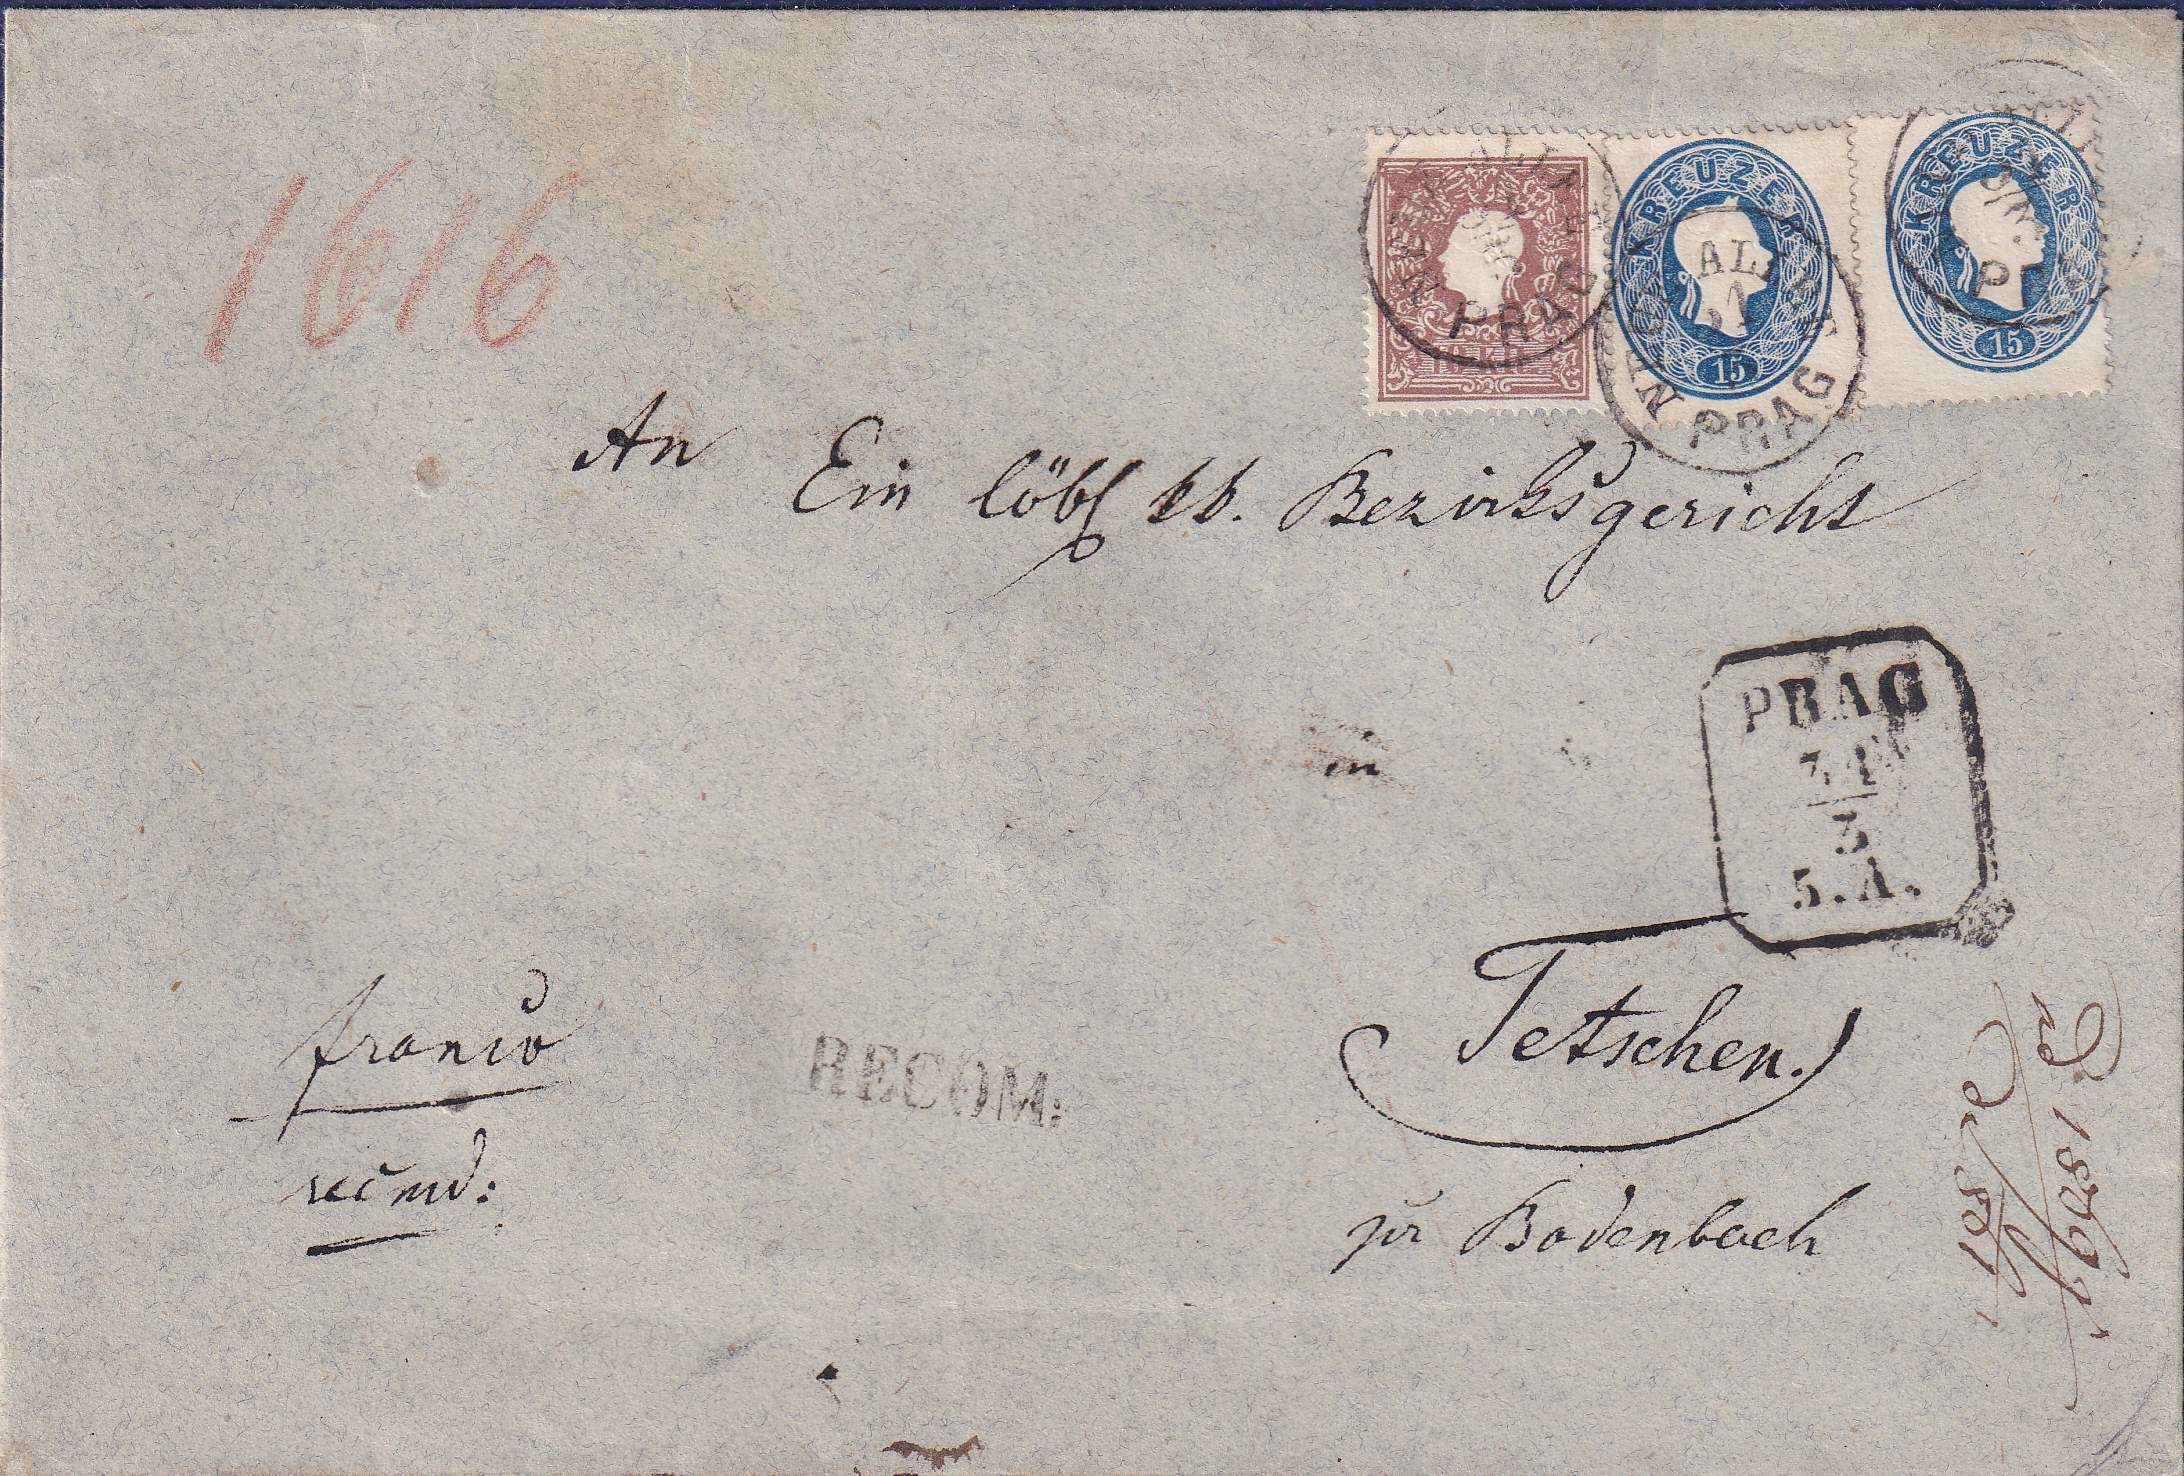 1616
KREUZER
15
KREUZER
15
PRAG
PRAG
An
Ein löbl kk. Bezirksgericht
PRAG
31
3
5.A.
in
Tetschen.
franco
RECOM:
recmd:
pr Bodenbach